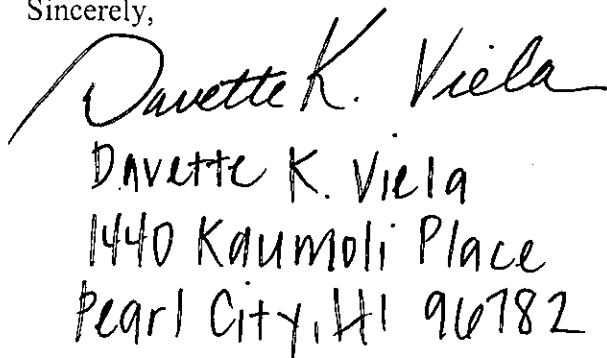 Sincerely,
Davette K. Viela
Davette K. Viela
1440 Kaumoli Place
Pearl City, HI 96782